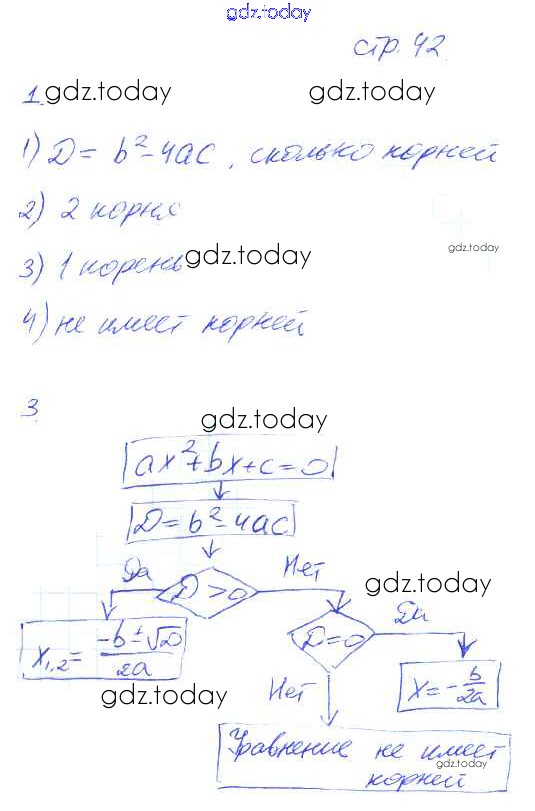 gdz.today
стр. 42
1.
gdz.today gdz.today
1) D = b² - 4ac, сколько корней
2) 2 корня
gdz.today
3) 1 корень
gdz.today
4) не имеет корней
3
gdz.today
ax² + bx + c = 0
D = b² - 4ac
Да D > 0 Нет
gdz.today
x₁,₂ = (-b ± √D)/2a
D = 0 Да
x = - b/2a
gdz.today
Нет
Уравнение не имеет
gdz.today
корней